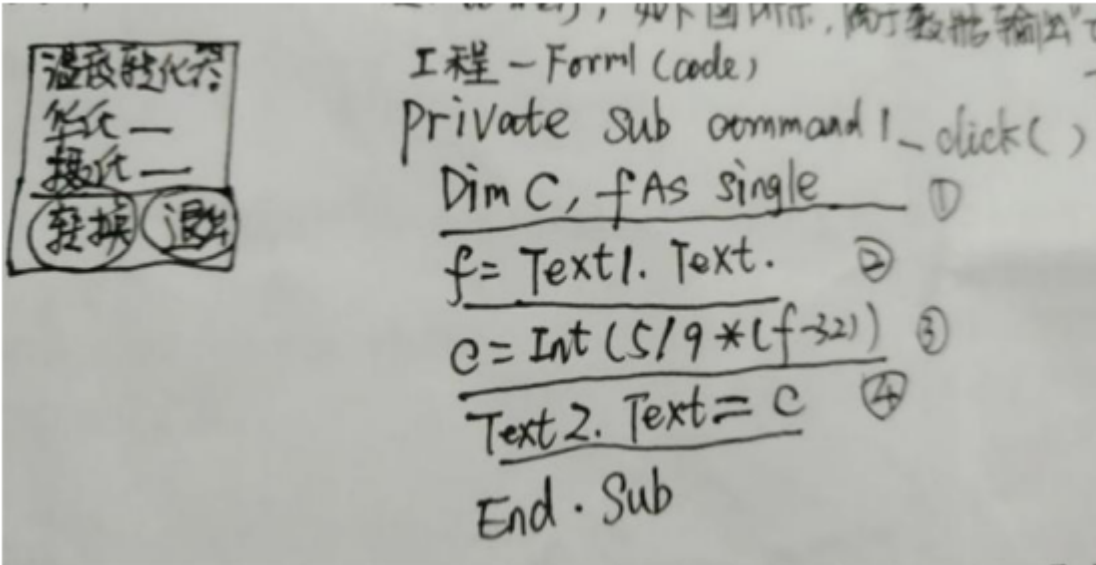 如下图所示,属于数据输出"
温度转化器
华氏—
摄氏—
转换 退出
工程-Form1(code)
private sub command1_click()
Dim C, f As single ①
f= Text1. Text. ②
c=Int(5/9*(f-32)) ③
Text2. Text=c ④
End. Sub